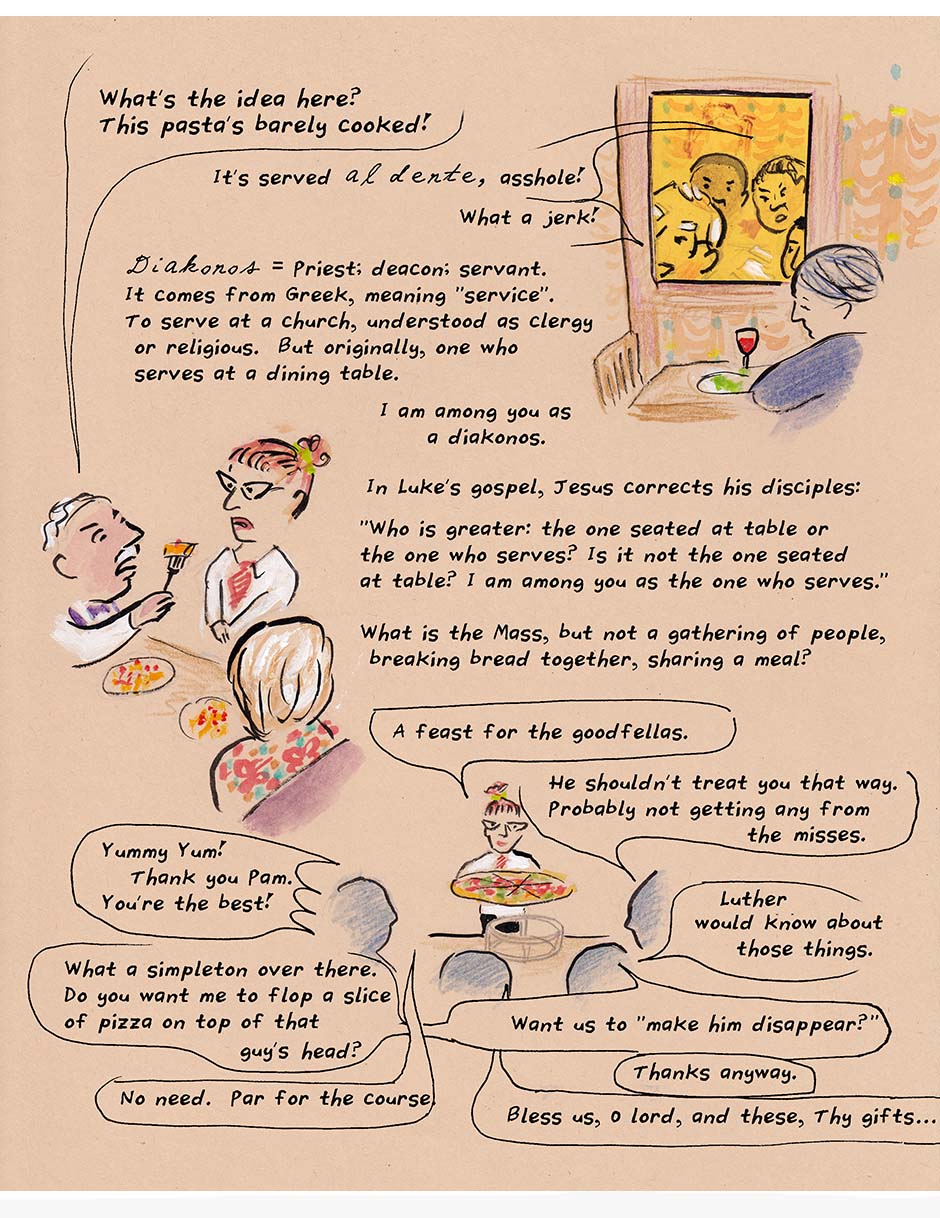 What's the idea here?
This pasta's barely cooked!
It's served al dente, asshole!
What a jerk!
Diakonos = Priest; deacon; servant.
It comes from Greek, meaning "service".
To serve at a church, understood as clergy
or religious. But originally, one who
serves at a dining table.
I am among you as
a diakonos.
In Luke's gospel, Jesus corrects his disciples:
"Who is greater: the one seated at table or
the one who serves? Is it not the one seated
at table? I am among you as the one who serves."
What is the Mass, but not a gathering of people,
breaking bread together, sharing a meal?
A feast for the goodfellas.
He shouldn't treat you that way.
Probably not getting any from
the misses.
Yummy Yum!
Thank you Pam.
You're the best!
Luther
would know about
those things.
What a simpleton over there.
Do you want me to flop a slice
of pizza on top of that
guy's head?
Want us to "make him disappear?"
Thanks anyway.
No need. Par for the course.
Bless us, O lord, and these, Thy gifts...